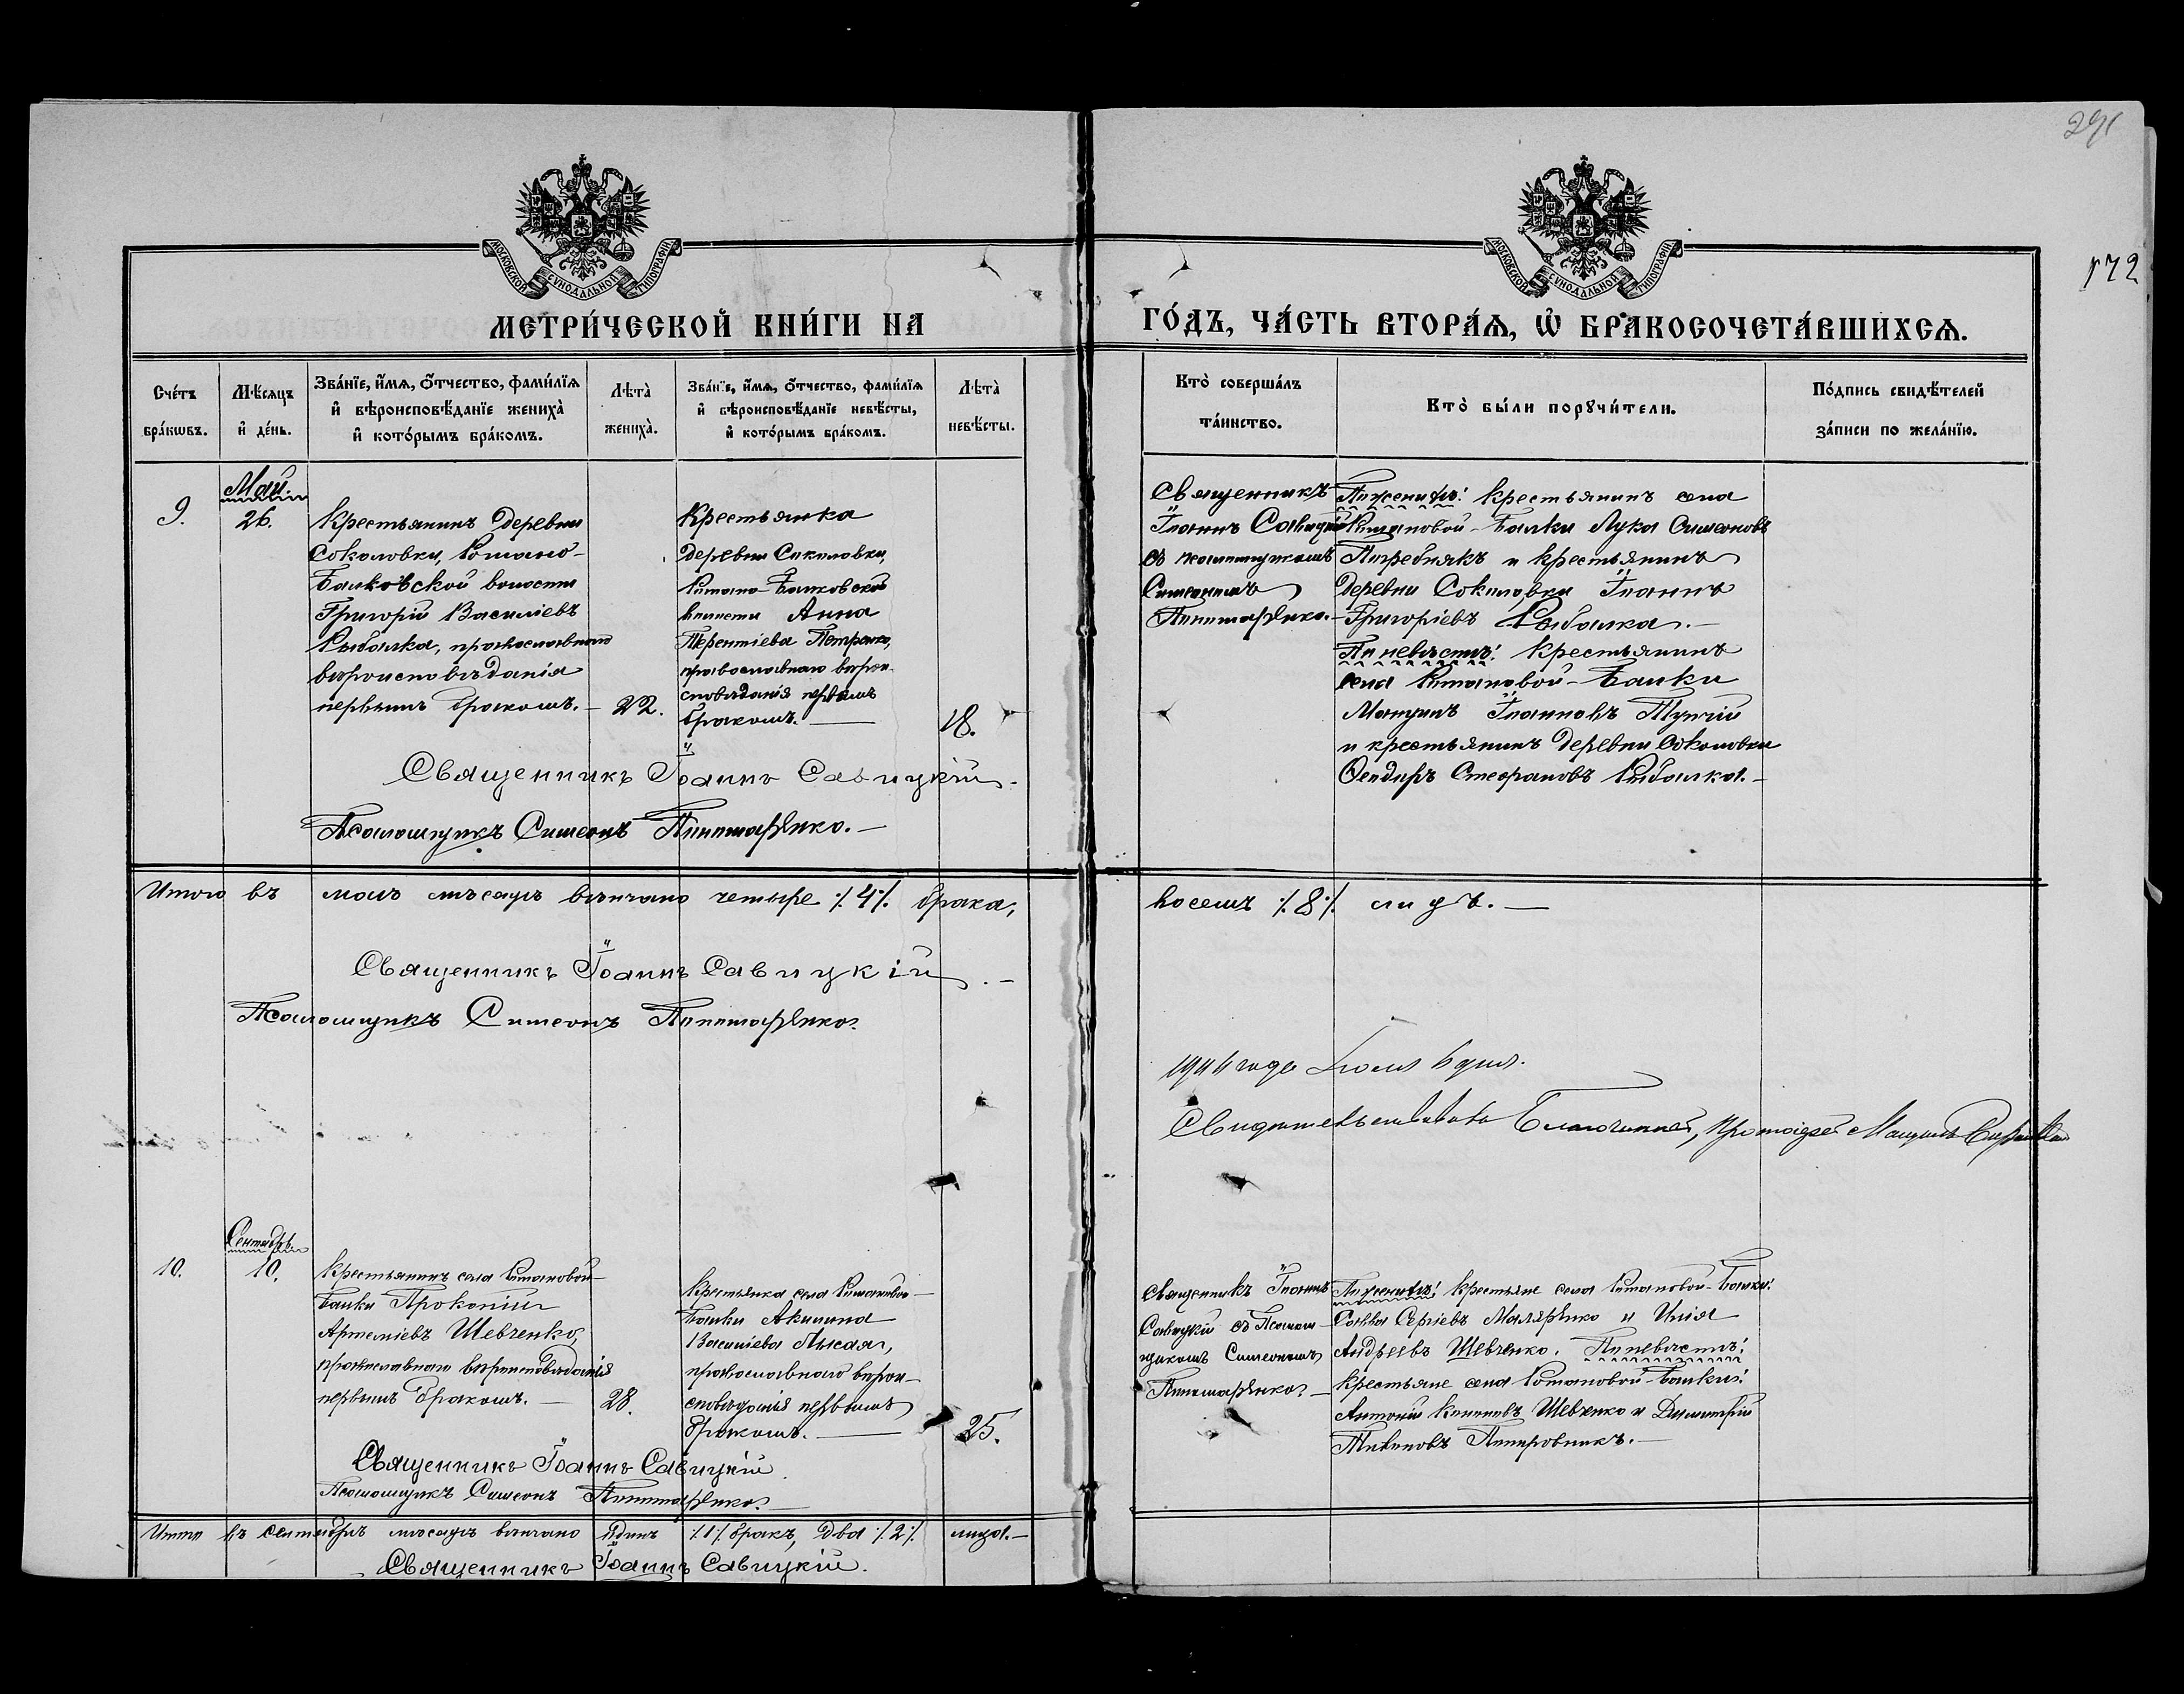 291
172
МОСКОВСКОЙ СѴНОДАЛЬНОЙ ТИПОГРАФІИ
МОСКОВСКОЙ СѴНОДАЛЬНОЙ ТИПОГРАФІИ
МЕТРИ́ЧЕСКОЙ КНИ́ГИ НА
ГО́ДЪ, ЧА́СТЬ ВТОРА́Ѧ, Ѡ҆ БРАКОСОЧЕТА́ВШИХСѦ.
Сче́тъ
бра́кѡвъ.
Мѣ́сяцъ
и҆ де́нь.
Зва́нїе, и҆́мѧ, ѻ҆́тчество, фами́лїѧ
и҆ вѣроисповѣ́данїе жениха̀
и҆ кото́рымъ бра́комъ.
Лѣта̀
жениха̀.
Зва́нїе, и҆́мѧ, ѻ҆́тчество, фами́лїѧ
и҆ вѣроисповѣ́данїе невѣ́сты,
и҆ кото́рымъ бра́комъ.
Лѣта̀
невѣ́сты.
Кто̀ соверша́лъ
та́инство.
Кто̀ бы́ли порꙋчи́тели.
По́дпись свидѣ́телей
за́писи по жела́нїю.
9.
Май.
26.
Крестьянинъ деревни
Соколовки, Романо-
Балковской волости
Григорій Василіевъ
Рыбалка, православнаго
вѣроисповѣданія
первымъ бракомъ. —
22.
Крестьянка
деревни Соколовки,
Романо-Балковской
волости Анна
Терентіева Петренко,
православнаго вѣрои-
сповѣданія первымъ
бракомъ. —
18.
Священникъ
Іоаннъ Савицкій
съ псаломщикомъ
Симеономъ
По женихѣ: крестьянинъ села
Романовой-Балки Лука Симеоновъ
Погребнякъ и крестьянинъ
деревни Соколовки Іоаннъ
Григоріевъ Рыбалка. —
По невѣстѣ: крестьянинъ
села Романовой-Балки
Іоанновъ
и крестьянинъ деревни Соколовки
Ѳеодоръ Стефановъ Рыбалка. —
Священникъ Іоаннъ Савицкій.
Псаломщикъ Симеонъ
Итого въ маѣ мѣсяцѣ вѣнчано четыре ٪4٪ брака,
восемь ٪8٪ лицъ. —
Священникъ Іоаннъ Савицкій. —
Псаломщикъ Симеонъ
Іюля 6 дня.
Благочинный, Протоіерей
10.
Сентябрь
10.
Крестьянинъ села Романовой-
Балки Прокопій
Артеміевъ Шевченко,
православнаго вѣроисповѣданія
первымъ бракомъ. —
28.
Крестьянка села Романовой-
Балки Акилина
Василіева Лысая,
православнаго вѣрои-
сповѣданія первымъ
бракомъ. —
25.
Священникъ Іоаннъ
Савицкій съ Псалом-
щикомъ Симеономъ
По женихѣ: крестьяне села Романовой-Балки:
Савва Сергіевъ Маляренко и Илія
Андреевъ Шевченко. По невѣстѣ:
крестьяне села Романовой-Балки:
Антоній Шевченко и Димитрій
Священникъ Іоаннъ Савицкій.
Псаломщикъ Симеонъ
Итого въ сентябрѣ мѣсяцѣ вѣнчано одинъ ٪1٪ бракъ, два ٪2٪ лица. —
Священникъ Іоаннъ Савицкій.